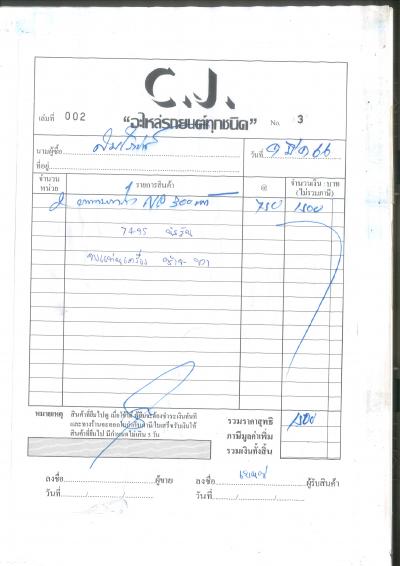 C.J.
เล่มที่ 002 "อะไหล่รถยนต์ทุกชนิด" No. 3
นามผู้ซื้อ
วันที่ 9 มีค 66
ที่อยู่
จำนวน หน่วย รายการสินค้า @ จำนวนเงิน : บาท (ไม่รวมภาษี)
2 750 1500
7495
หมายเหตุ สินค้าที่ยืมไปดู เมื่อใช้ได้ ผู้ยืมจะต้องชำระเงินทันที
และทางร้านจะออกใบกำกับภาษี/ใบเสร็จรับเงินให้
สินค้าที่ยืมไป มีกำหนดไม่เกิน 3 วัน
รวมราคาสุทธิ 1500
ภาษีมูลค่าเพิ่ม
รวมเงินทั้งสิ้น
ลงชื่อ ผู้ขาย ลงชื่อ ผู้รับสินค้า
วันที่ / / วันที่ / /